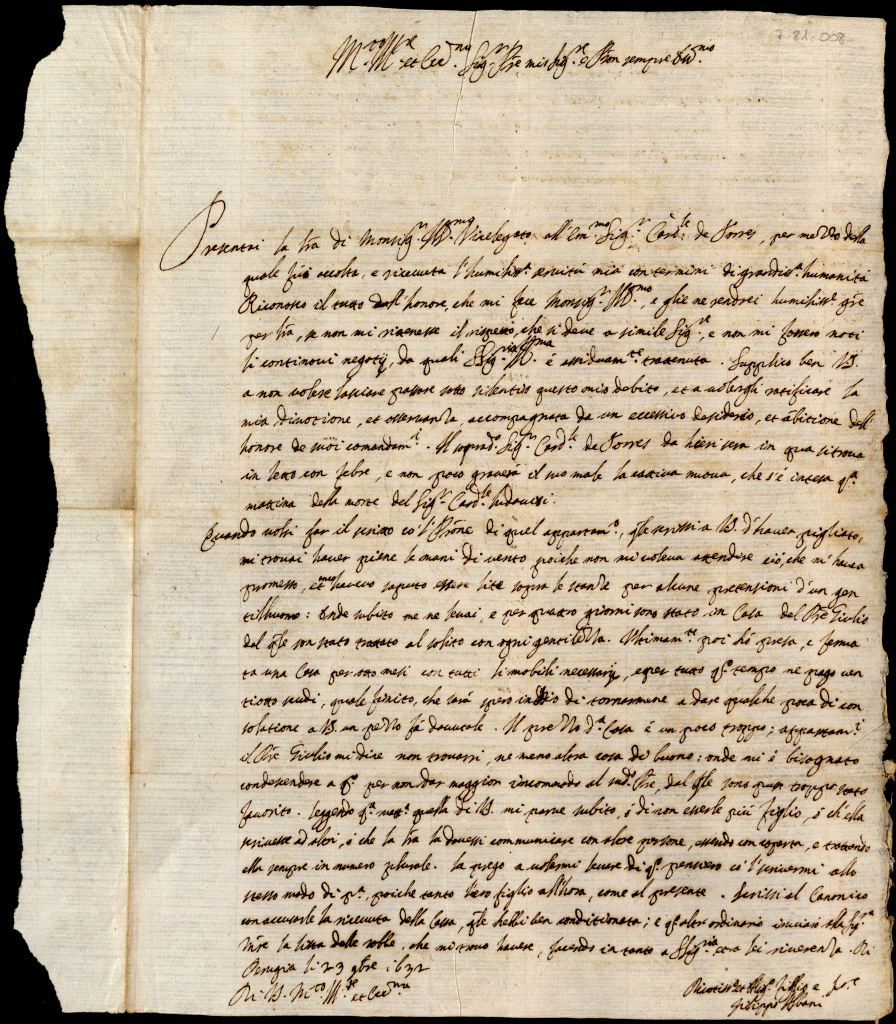 781-008
M.co Ill.re et Ecc.mo Sig.r P're mio Sig.r e P'ron sempre
Presentai la l'ra di Monsig.r Ill.mo Vicelegato all'Em.mo Sig.r Card.le de Torres, per mezzo della
quale fui accolta, e ricevuta l'humiliss.a servitù mia con termini di grandiss.a humanità
Riconosco il tutto dall'honore, che mi fece Monsig.r Ill.mo, e glie ne renderei humiliss.e gr'e
per l'ra, se non mi ritenesse il rispetto, che si deve a simile Sig.re, e non mi fossero noti
li continovi negotij, da quali S.Sig.ria Ill.ma è assiduam.te trattenuta. Supplico ben V.S.
a non volere lasciare passare sotto silentio questo mio debito, et a volergli ratificare la
mia divotione, et osservanza, accompagnata da un eccessivo desiderio, et a'bitione dell'
honore de suoi comandam.ti. Il soprad.o Sig.r Card.le de Torres da hieri sera in qua si trova
in letto con febre, e non poco graverà il suo male la cattiva nuova, che s'è intesa q.a
mattina della morte del Sig.r Card.le Ludovisi.
Quando volsi far il scritto co'l P'rone di quel appartam.to, q'le scrissi a V.S. d'haver pigliato,
mi trovai haver piene le mani di vento poiche non mi voleva attendere ciò, che m'havea
promesso, et havevo saputo essere lite sopra le stanze per alcune pretensioni d'un gen
tilhuomo: Onde subito me ne levai, e per quattro giorni sono stato in Casa del P're Giulio
dal q'le son stato trattato al solito con ogni gentilezza. Ultimam.te poi hò presa, e ferma
ta una Casa per otto mesi con tutti li mobili necessarij, e per tutto q.o tempo ne pago ven
tiotto scudi, quale finito, che sarà spero in Dio di tornarmene a dare qualche poca di con
solatione a V.S. un pezzo fà dovutale. Il prezzo d.a Casa è un poco troppo; appartam.ti
il P're Giulio mi dice non trovarsi, ne meno altra cosa di buono: onde mi è bisognato
condescendere a q.o per non dar maggior incomodo al sud.o P're, dal q'le sono pur troppo stato
favorito. Leggendo q.a quella di V.S. mi parve subito, ò di non esserle più figlio, ò ch'ella
scrivesse ad altri, ò che la l'ra la dovessi communicare con altre persone, essendo con coperta, e trattando
ella sempre in numero plurale. La prego a volermi levare di q.o pensiero co'l scrivermi allo
stesso modo di p.a, poiche tanto l'ero figlio all'hora, come al presente. Scrissi al Canonico
con accusarle la ricevuta della Cassa, q'le hebbi ben conditionata; e q.o altr'ordinario inviarò alla Sig.ra
M're la lista delle robbe, che mi trovo havere, facendo in tanto a S.Sig.ria et a lei riverenza. Di
Perugia li 23 9bre 1632
Di V.S. M.co Ill.re et Ecc.ma
Divotiss.o et Obl.o figlio e ser.re
Filippo Albani